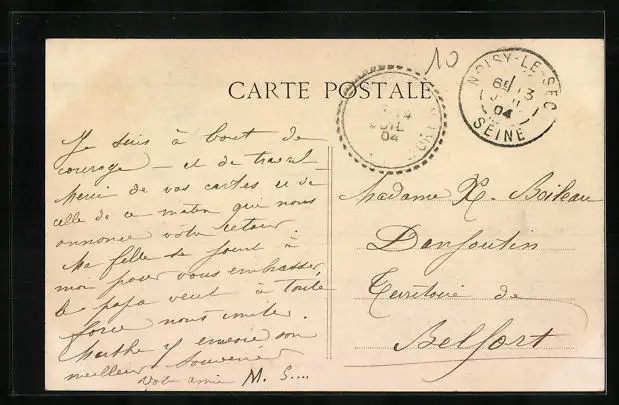 10
CARTE POSTALE
NOISY-LE-SEC
6E 13
04
SEINE
14
JUIL
04
Je suis à bout de
courage – et de travail –
Merci de vos cartes et de
celle de ce matin qui nous
annonce votre retour.
Ma fille se joint à
moi pour vous embrasser,
le papa veut à toute
force nous imiter.
Marthe y envoie son
meilleur Souvenir
Votre amie M. S....
Madame X. Boileau
Danjoutin
Territoire de
Belfort